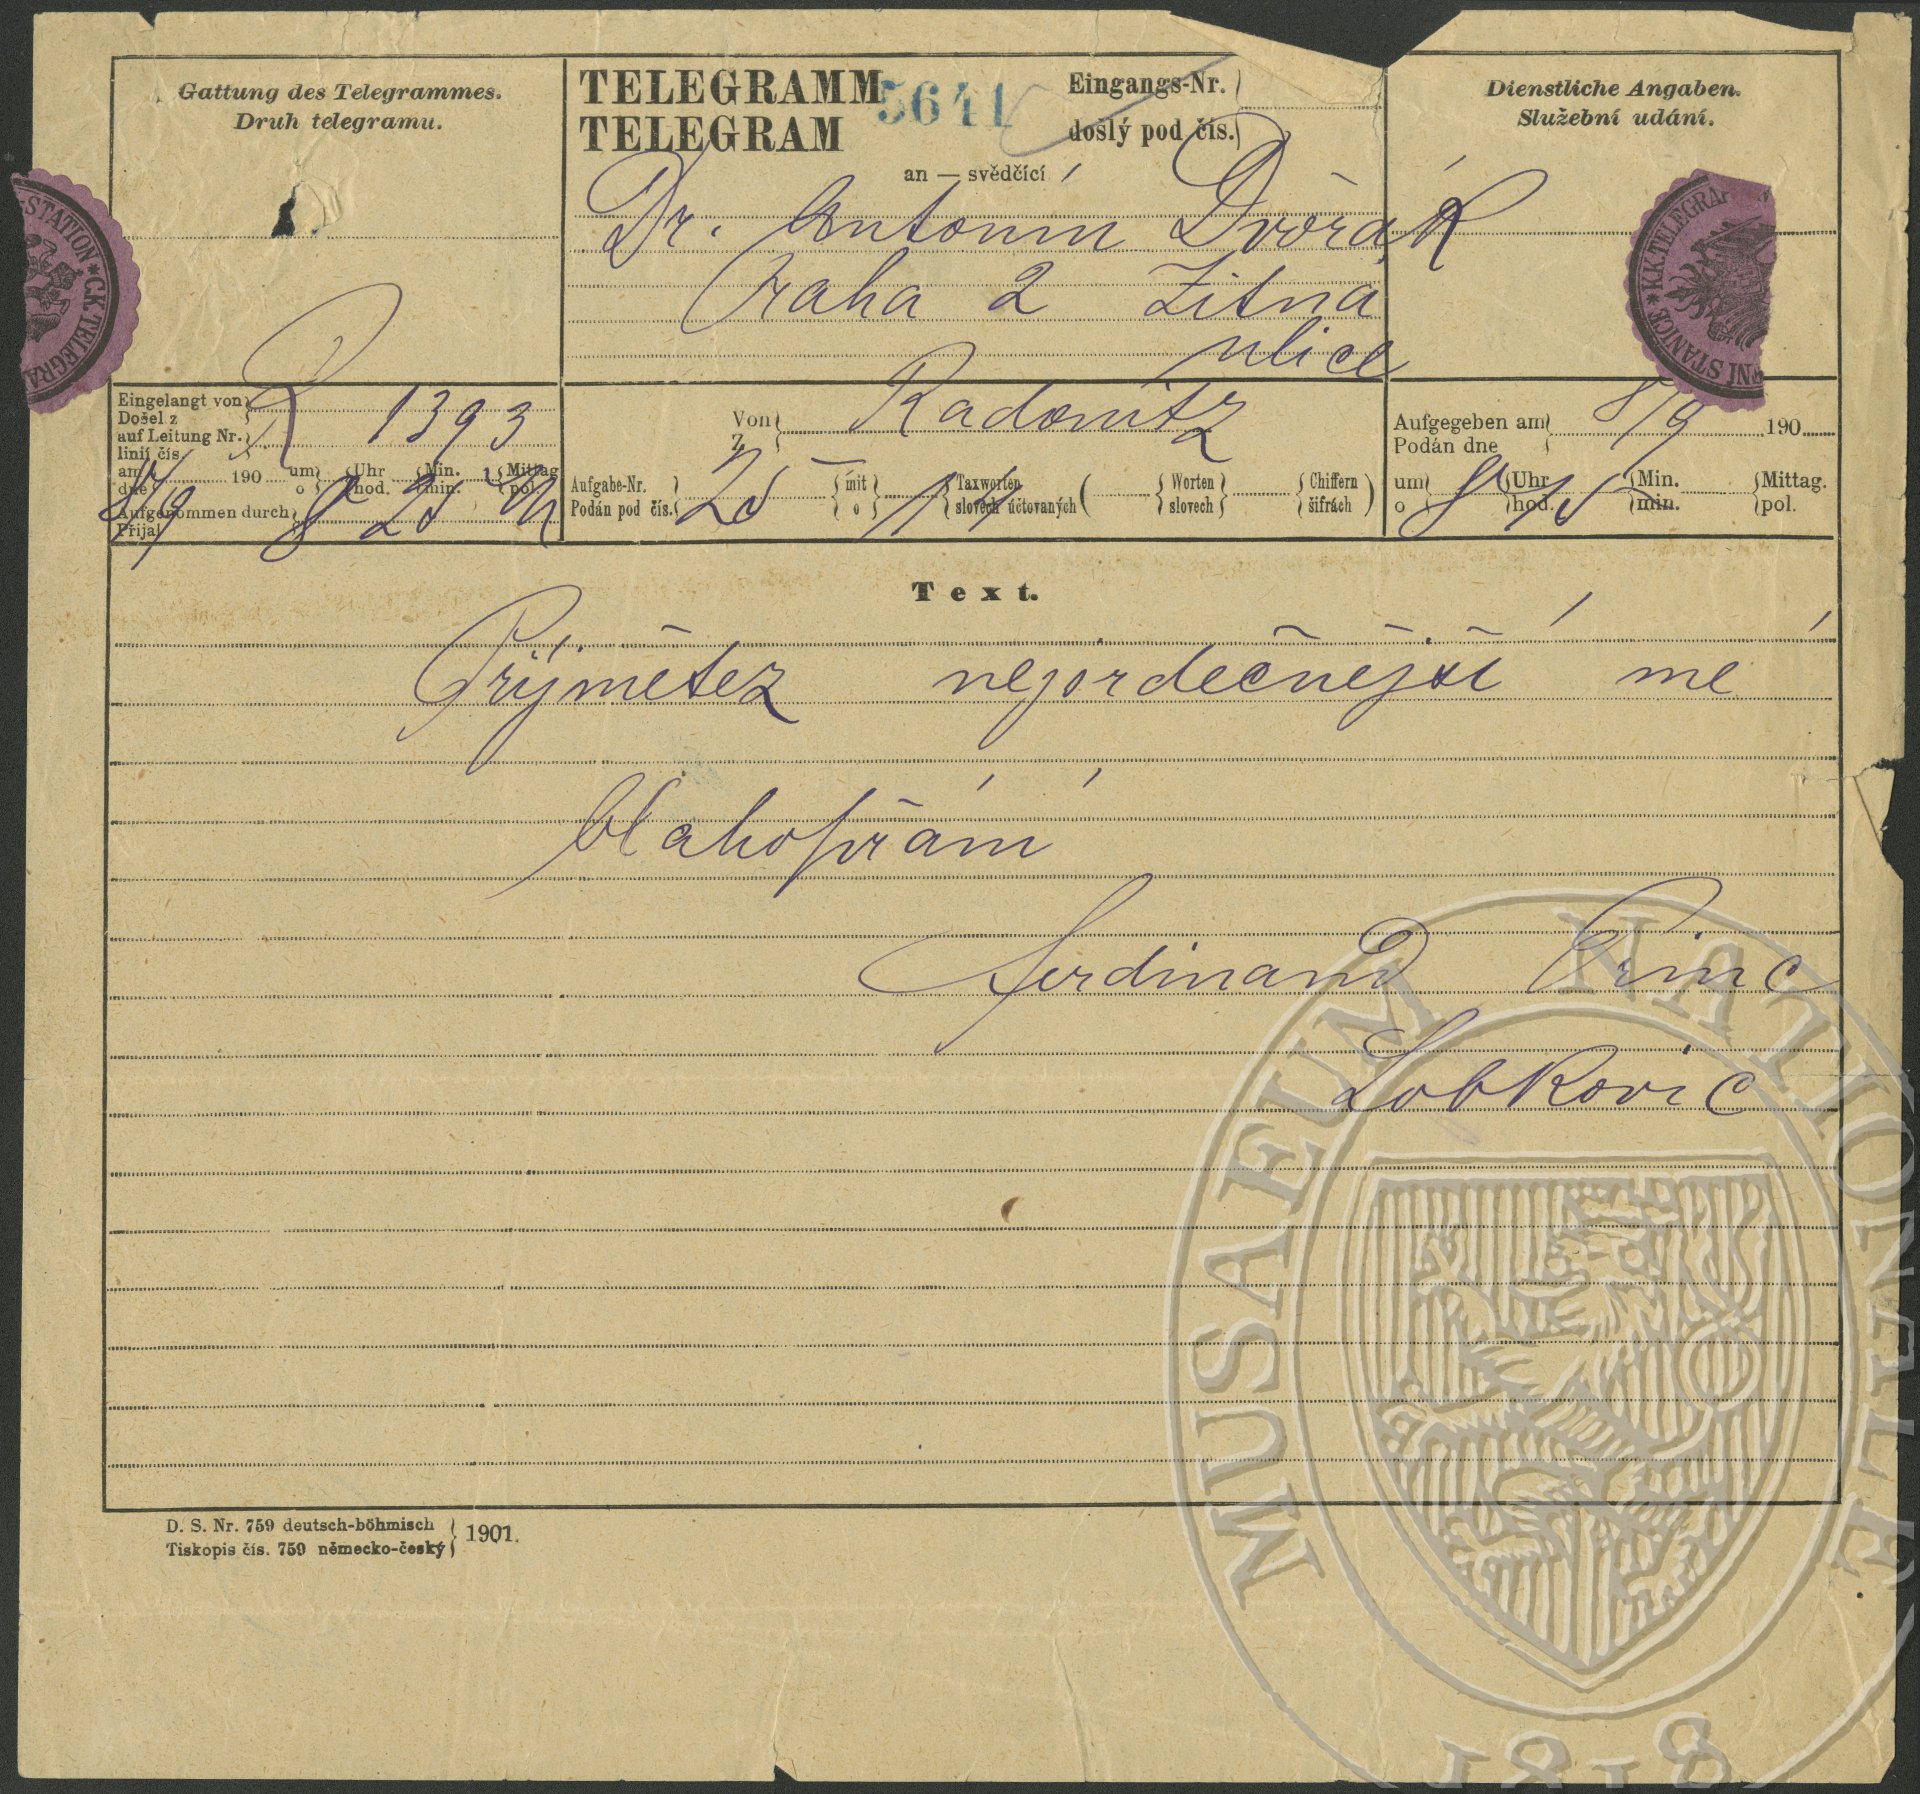 Gattung des Telegrammes.
Druh telegramu.
TELEGRAMM
TELEGRAM
5641
Eingangs-Nr.
došlý pod čís.
an — svědčící
Dienstliche Angaben.
Služební udání.
Dr. Antonín Dvořák
Praha 2 Žitná
ulice
STATION * C.K. TELEGRA
* K.K. TELEGRA
RNI STANICE
Eingelangt von
Došel z
auf Leitung Nr.
linií čís.
R 1393
am
dne
190
um
o
Uhr
hod.
Min.
min.
Mittag
pol.
8 25
Aufgenommen durch
Přijal
Von
Z
Radonitz
Aufgabe-Nr.
Podán pod čís.
25
mit
o
11
Taxworten
slovech účtovaných
Worten
slovech
Chiffern
šifrách
Aufgegeben am
Podán dne
8/9
190
um
o
Uhr
hod.
Min.
min.
Mittag.
pol.
8 15
Text.
Přijmětez nejsrdečnější mé
blahopřání
Ferdinand Princ
Lobkovic
D. S. Nr. 759 deutsch-böhmisch
Tiskopis čís. 759 německo-český
1901.
MUSAEUM NATIONALE
1818